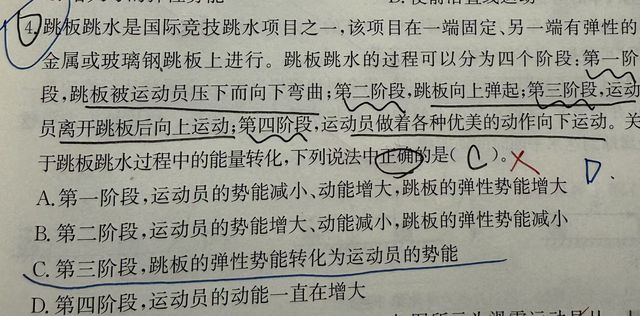 4. 跳板跳水是国际竞技跳水项目之一,该项目在一端固定、另一端有弹性的
金属或玻璃钢跳板上进行。跳板跳水的过程可以分为四个阶段:第一阶
段,跳板被运动员压下而向下弯曲;第二阶段,跳板向上弹起;第三阶段,运动
员离开跳板后向上运动;第四阶段,运动员做着各种优美的动作向下运动。关
于跳板跳水过程中的能量转化,下列说法中正确的是( C )。 ×
D.
A. 第一阶段,运动员的势能减小、动能增大,跳板的弹性势能增大
B. 第二阶段,运动员的势能增大、动能减小,跳板的弹性势能减小
C. 第三阶段,跳板的弹性势能转化为运动员的势能
D. 第四阶段,运动员的动能一直在增大